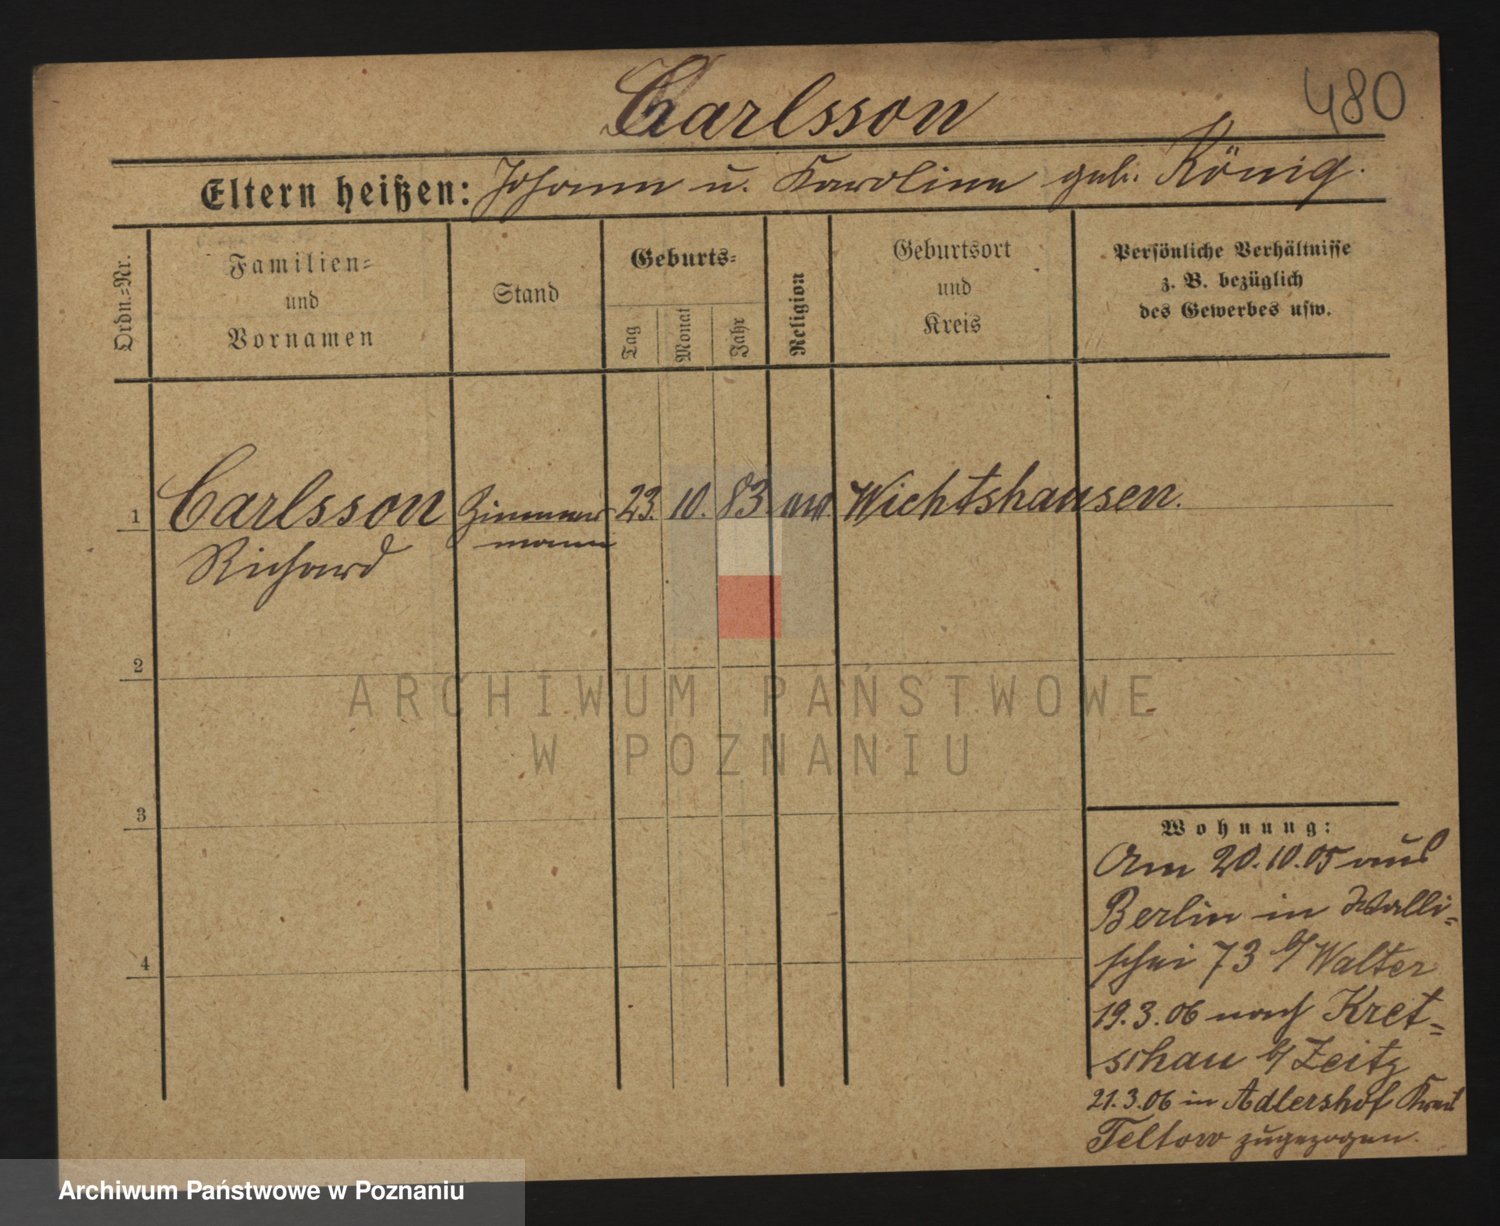 Carlsson
480
Eltern heißen: Johann u. Karoline geb. König.
Ordn.-Nr.
Familien-
und
Vornamen
Stand
Geburts-
Tag
Monat
Jahr
Religion
Geburtsort
und
Kreis
Persönliche Verhältnisse
z. B. bezüglich
des Gewerbes usw.
1 Carlsson Zimmer 23. 10. 83. ev. Wichtshausen.
Richard mann
2
3
4
Wohnung:
Am 20.10.05 aus
Berlin in Walli=
schei 73 b/ Walter
19.3.06 nach Kret=
schau b/ Zeitz
21.3.06 in Adlershof Kreis
Teltow zugezogen.
ARCHIWUM PAŃSTWOWE
W POZNANIU
Archiwum Państwowe w Poznaniu